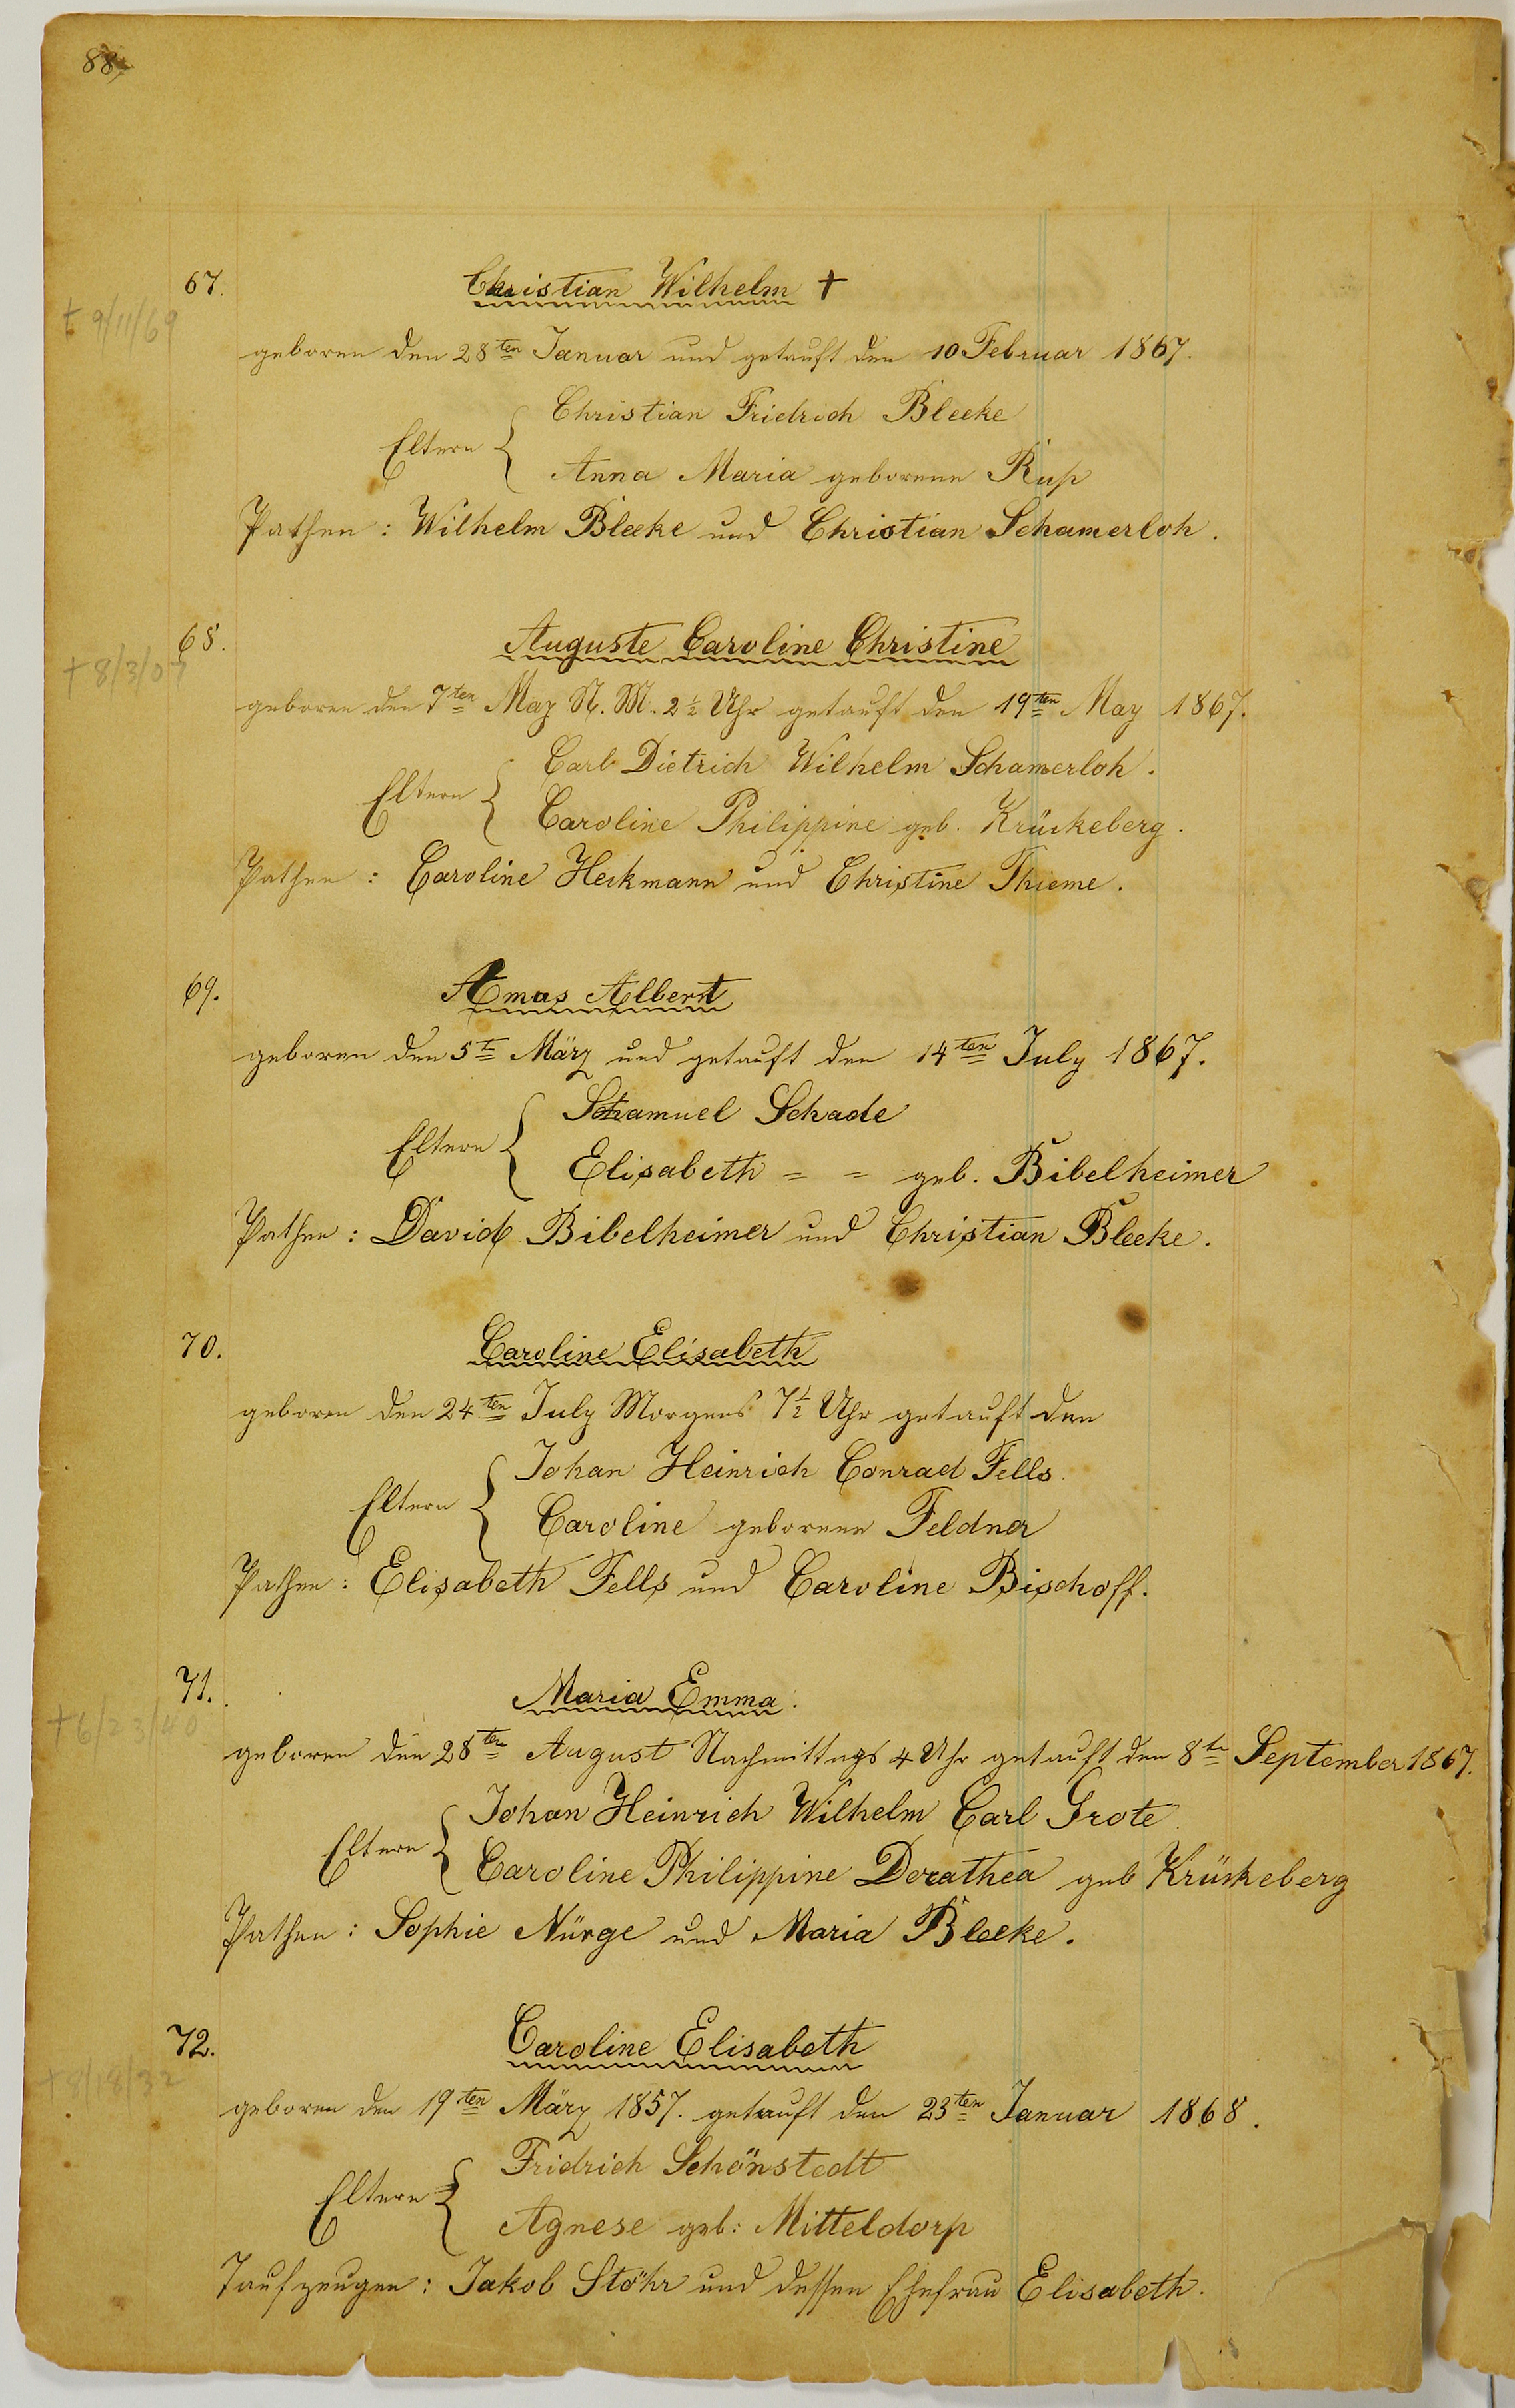 88,
67. Christian Wilhelm †
† 9/11/69
geboren den 28ten Januar und getauft den 10 Februar 1867.
Christian Fridrich Bleeke
Eltern {
Anna Maria geborene Rup
Pathen : Wilhelm Bleeke und Christian Schamerloh .
68. Auguste Caroline Christine
† 8/3/07
geboren den 7ten May N. M. 2 ½ Uhr getauft den 19ten May 1867.
Carl Dietrich Wilhelm Schamerloh .
Eltern {
Caroline Philippine geb. Krückeberg .
Pathen : Caroline Heckmann und Christine Thieme .
69. Amos Albert
geboren den 5te März und getauft den 14ten July 1867.
Schamuel Schade
Eltern {
Elisabeth = = geb. Bibelheimer
Pathen : David Bibelheimer und Christian Bleeke .
70. Caroline Elisabeth
geboren den 24ten July Morgens 7 ½ Uhr getauft den
Johan Heinrich Conrad Fells
Eltern {
Caroline geborene Feldner
Pathen : Elisabeth Fells und Caroline Bischoff.
71. Maria Emma .
† 6/23/40
geboren den 28ten August Nachmittags 4 Uhr getauft den 8te September 1867.
Johan Heinrich Wilhelm Carl Grote
Eltern {
Caroline Philippine Dorathea geb Krückeberg
Pathen : Sophie Nürge und Maria Bleeke .
72. Caroline Elisabeth
† 8/18/32
geboren den 19ten März 1857. getauft den 23ten Januar 1868 .
Fridrich Schönstedt
Eltern {
Agnese geb: Mitteldorp
Taufzeugen : Jakob Stöhr und dessen Ehefrau Elisabeth .